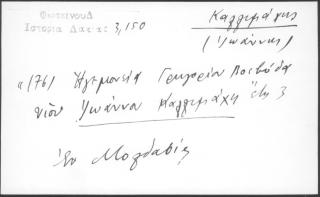 Φωτεινοῦ
Ἱστορία Δακίας 3,150
Καλλιμάχης
(Ἰωάννης)
«1761 Ἡγεμονεία Γρηγορίου Βοεβόδα
υἱοῦ Ἰωάννου Καλλιμάχη
ἐν Μολδαβίᾳ